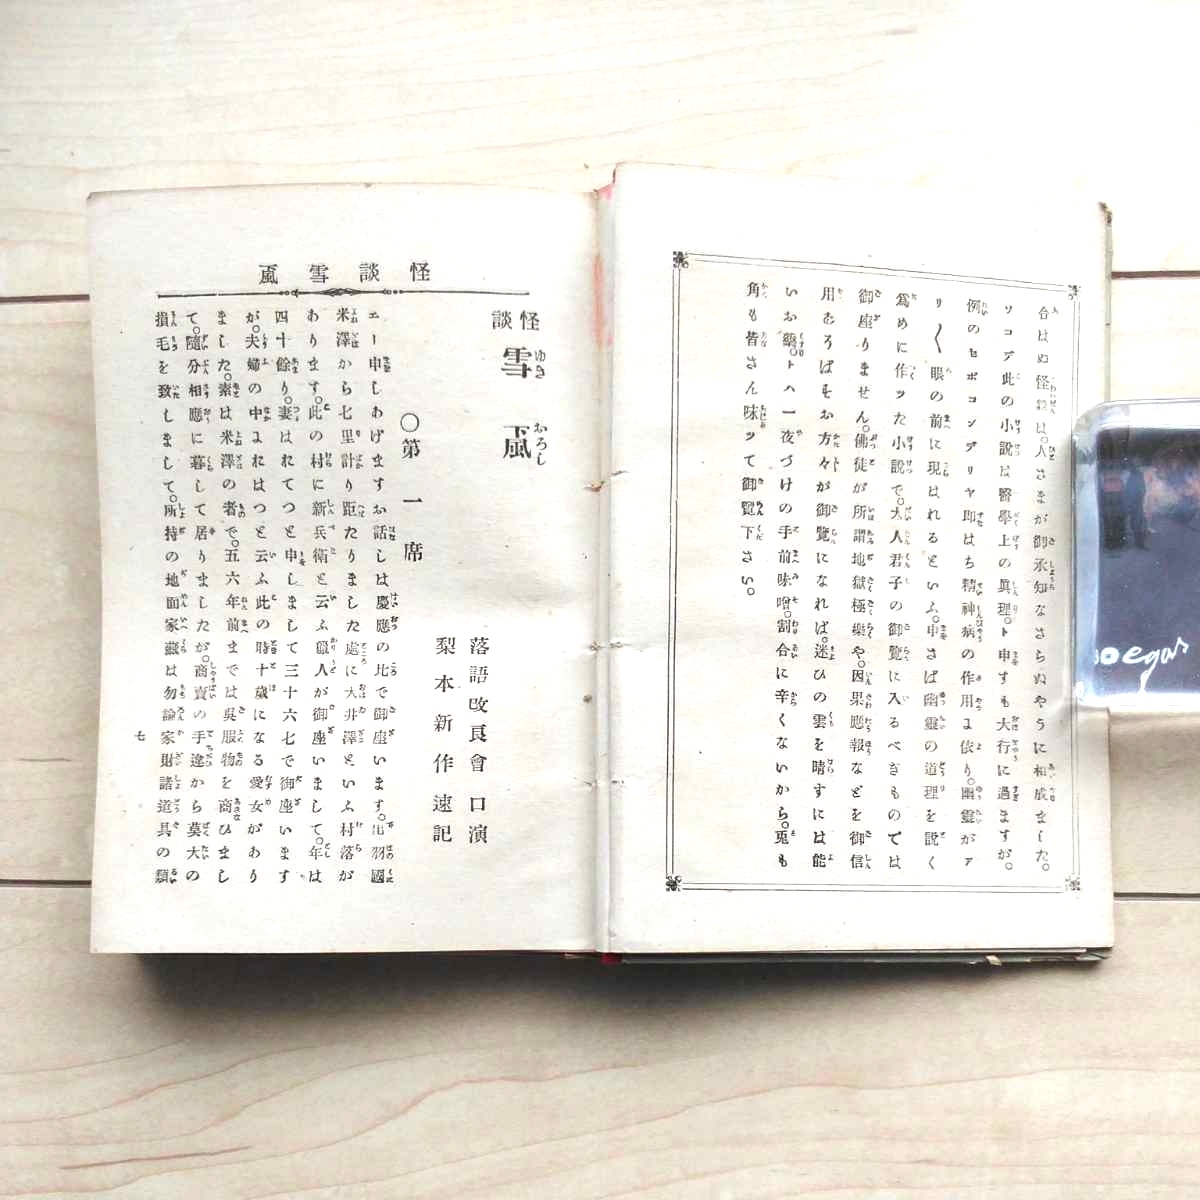 合はぬ怪談は。人さまが御承知なさらぬやうに相成ました。
ソコデ此の小説は醫學上の眞理。ト申すも大行に過ますが。
例のセボコンデリヤ即はち精神病の作用に依り。幽靈がア
リ〳〵眼の前に現はれるといふ。申さば幽靈の道理を説く
爲めに作ッた小説で。大人君子の御覽に入るべきものでは
御座りません。佛徒が所謂地獄極樂や。因果應報などを御信
用あろばすお方々が御覽になれば。迷ひの雲を晴すには能
いお藥。トハ一夜づけの手前味噌。割合に辛くないから。兎も
角も皆さん味ッて御覽下さい。
怪談雪颪
怪談
雪颪
ゆきおろし
落語改良會口演
梨本新作速記
○第一席
エー申しあげますお話しは慶應の比で御座います。出羽國
米澤から七里計り距たりました處に大井澤といふ村落が
あります。此の村に新兵衛と云ふ獵人が御座いまして。年は
四十餘り。妻はれてつと申しまして三十六七で御座います
が。夫婦の中よれはつと云ふ此の時十歳になる愛女があり
ました。素は米澤の者で。五六年前までは呉服物を商ひまし
て。隨分相應に暮して居りましたが。商賣の手違から莫大の
損毛を致しまして。所持の地面家藏は勿論家財諸道具の類
七
egar